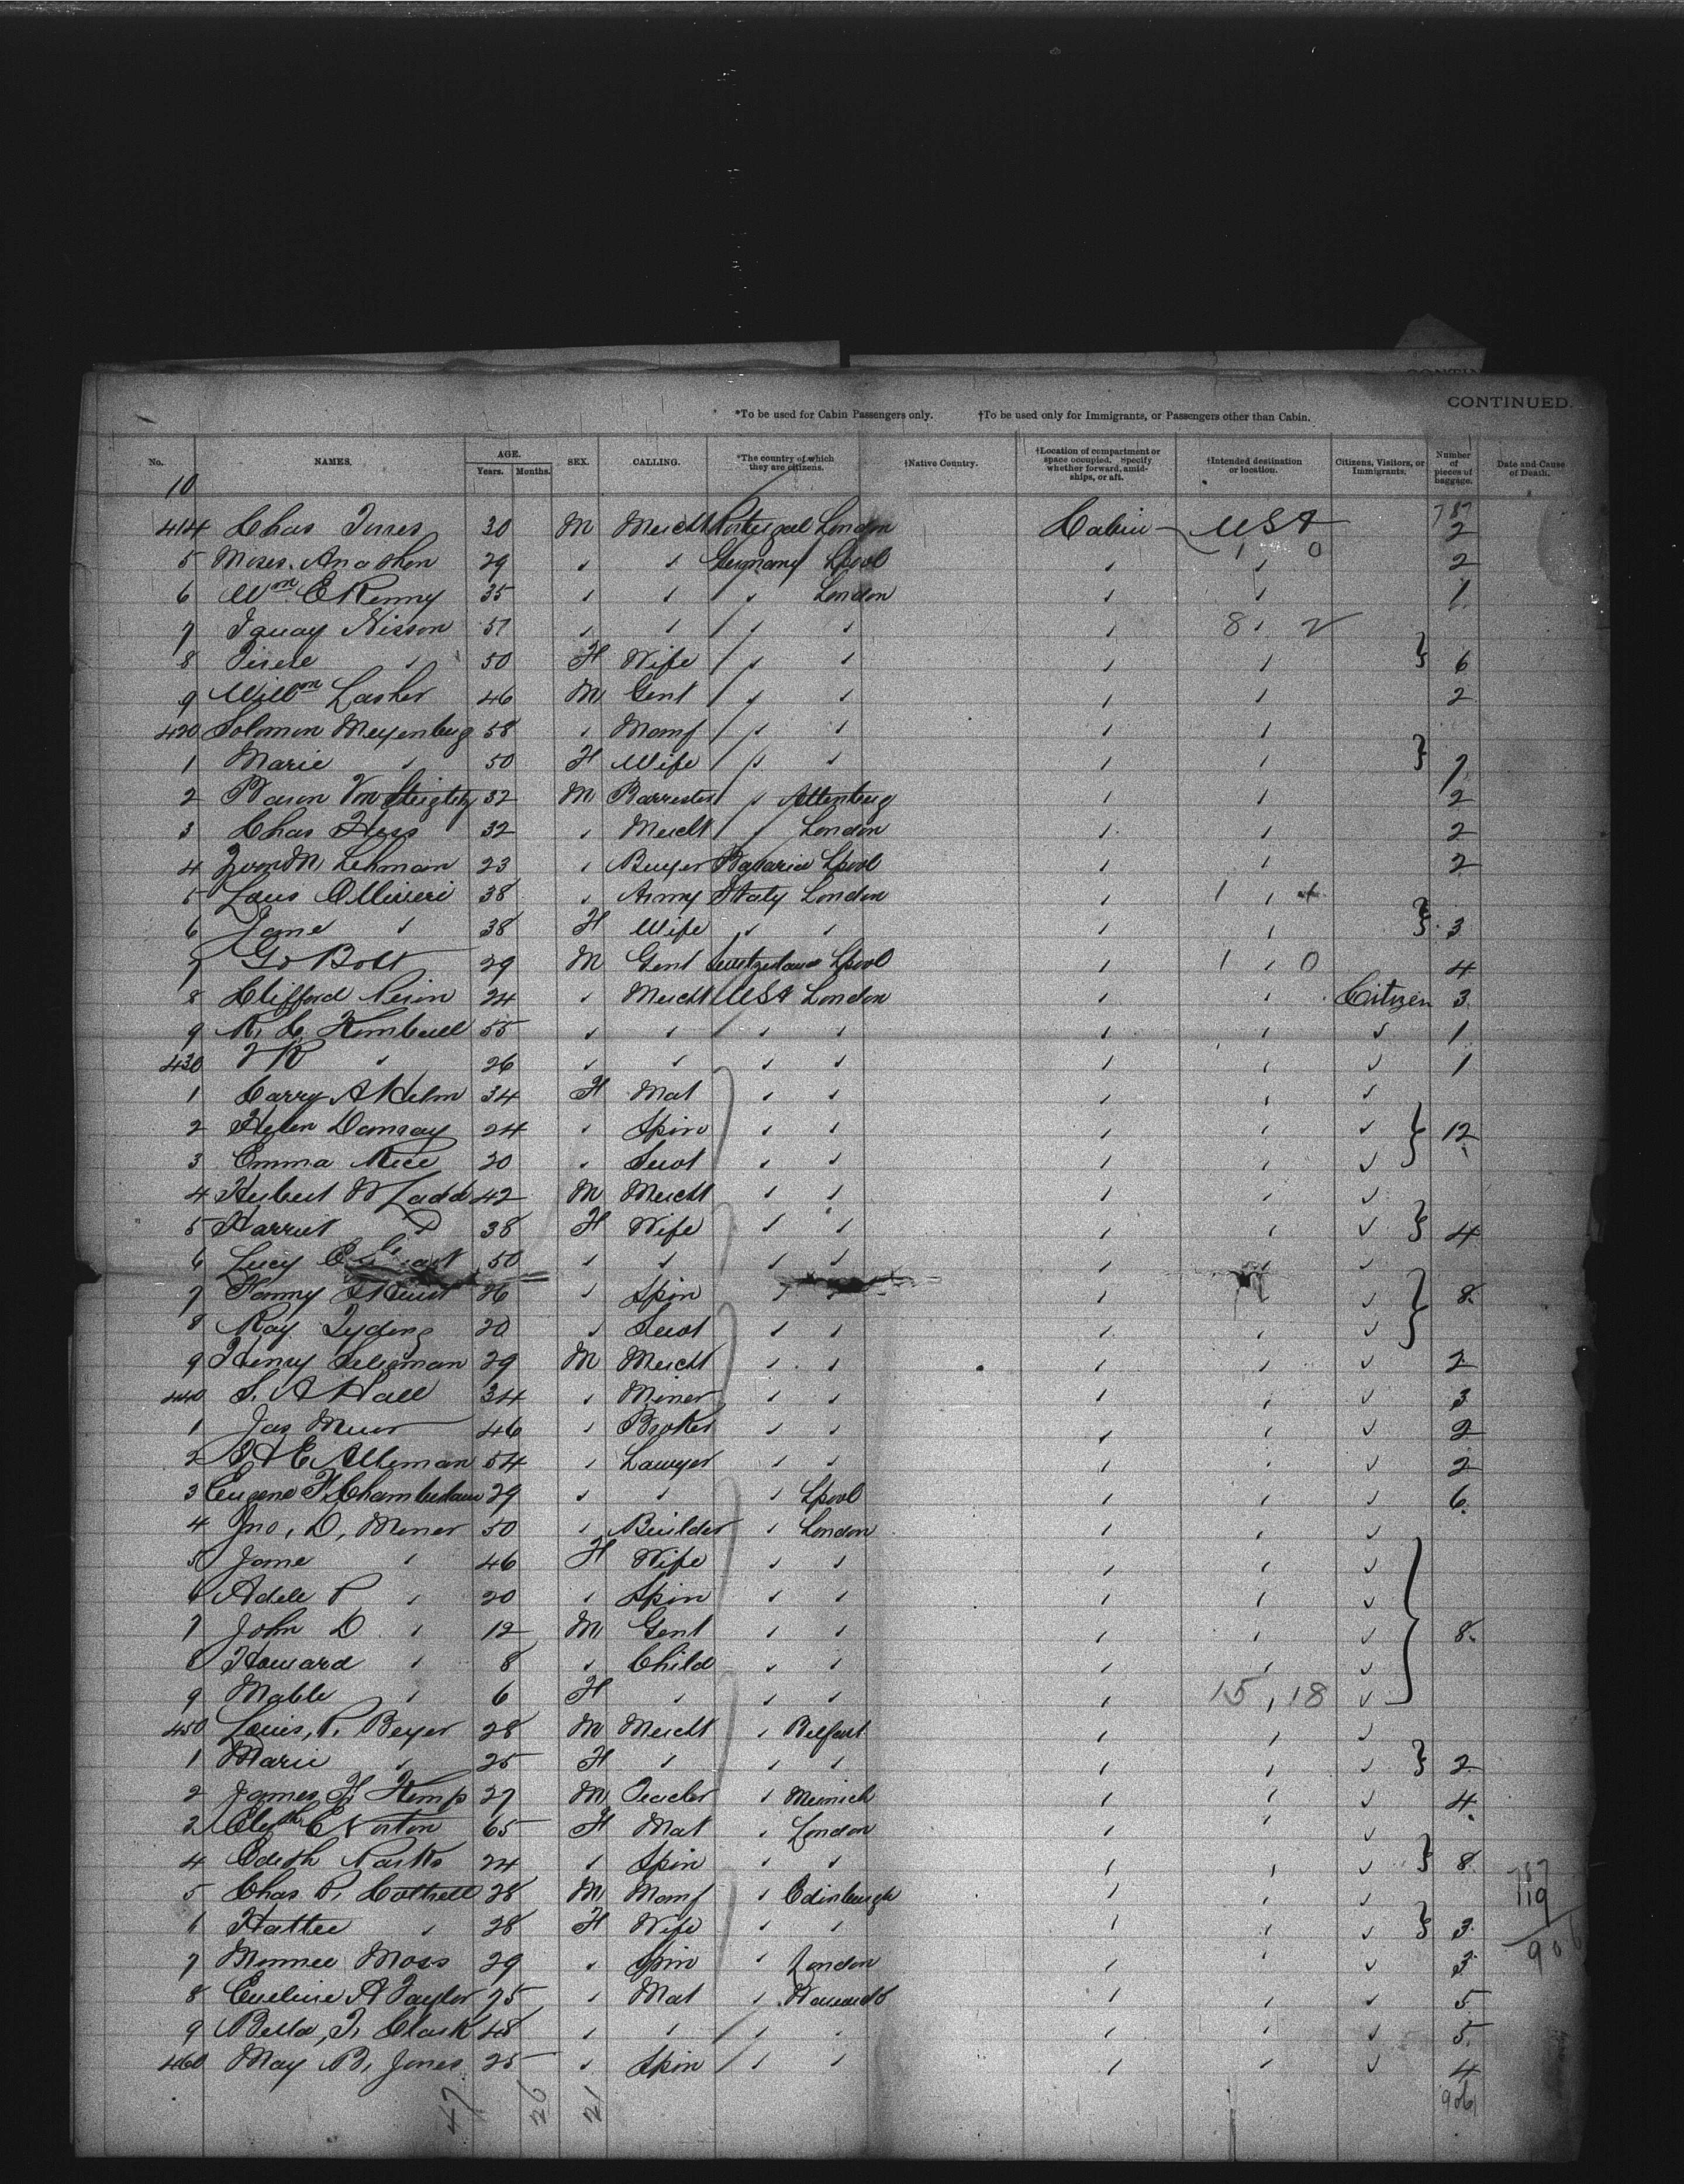 CONTIN
CONTINUED.
*To be used for Cabin Passengers only. †To be used only for Immigrants, or Passengers other than Cabin.
No. NAMES. AGE. Years. Months. SEX. CALLING. *The country of which they are citizens. †Native Country. †Location of compartment or space occupied. Specify whether forward, amidships, or aft. †Intended destination or location. Citizens, Visitors, or Immigrants. Number of pieces of baggage. Date and Cause of Death.
10
787
414 Chas Torres 30 M Mercht Portugal London Cabin USA 2
1 0
5 Moses 29 " " Germany Lpool " " 2
6 Wm E Kenny 35 " " " London " " 1
7 Nisson 51 " " " " " 8 " 2
8 " 50 F Wife " " " " } 6
9 Willm Lasher 46 M Gent " " " " 2
420 Solomon Meyenberg 58 " Manf " " " "
1 Marie " 50 F Wife " " " " } 7
2 Baron Von 32 M Barrester " Altenburg " " 2
3 Chas Hess 32 " Mercht " London " " 2
4 Lehman 23 " Buyer Bavaria Lpool " " 2
5 Louis Ollivieri 38 " Army Italy London " 1 " 4
6 Jane " 38 F Wife " " " " } 3
7 Bott 29 M Gent Switzerland Lpool " 1 " 0 4
8 Clifford Perin 24 " Mercht USA London " " Citizen 3
9 R. C. Kimball 55 " " " " " " " 1
430 " 26 " " " " " " " 1
1 Carry A Helm 34 F Mat " " " " "
2 Helen Damsay 24 " Spin " " " " " } 12
3 Emma Rice 20 " Servt " " " " "
4 Herbert W Ladd 42 M Mercht " " " " "
5 Harriet " 38 F Wife " " " " " } 4
6 Lucy 50 " " " " " " "
7 Fanny 26 " Spin " " " " " } 8
8 Kay 20 " Servt " " " " "
9 Henry Seligman 29 M Mercht " " " " " 2
440 S. A Hall 34 " Miner " " " " " 3
1 Jas Muir 46 " Broker " " " " " 2
2 54 " Lawyer " " " " " 2
3 Eugene F Chamberlain 29 " " " Lpool " " " 6
4 Jno, D, Miner 50 " Builder " London " " "
5 Jane " 46 F Wife " " " " "
6 Adele P " 20 " Spin " " " " "
7 John D " 12 M Gent " " " " " } 8
8 Howard " 8 " Child " " " " "
9 Mable " 6 F " " " " 15 " 18 "
450 Louis, P. Beyer 28 M Mercht " Belfast " " "
1 Marie " 25 F " " " " " " } 2
2 James F. Kemp 27 M " Munich " " " 4
3 Norton 65 F Mat " London " " "
4 Edith Parks 24 " Spin " " " " " } 8
5 Chas P. Cottrell 28 M Manf " Edinburgh " " "
6 Hattie " 28 F Wife " " " " " } 3
7 Minnee Moss 29 " Spin " London " " " 3
8 Eveline A Taylor 25 " Mat " " " " 5
9 Bella, T. Clark 48 " " " " " " " 5
460 May B, Jones 25 " Spin " " " " " 4
787
119
906
47 26 21
906